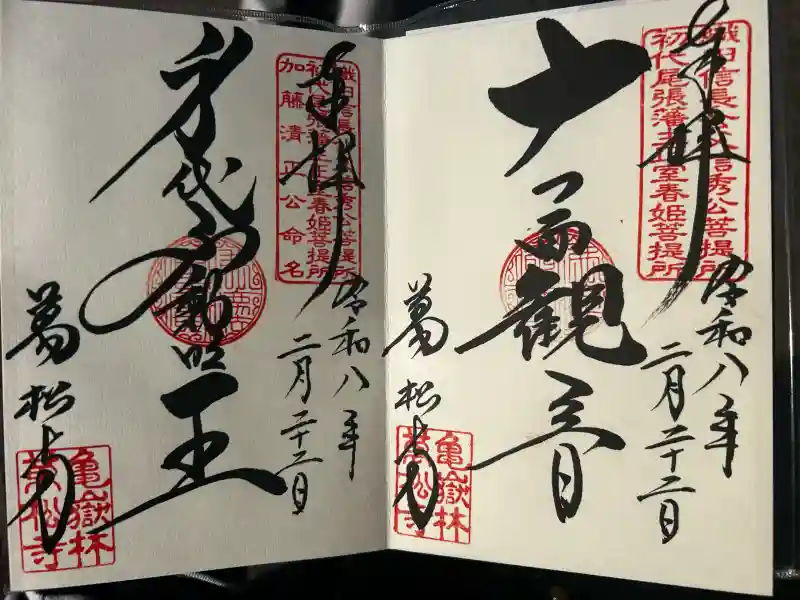 奉拝
織田信長公父信秀公菩提所
初代尾張藩主正室春姫菩提所
令和八年
二月二十二日
十一面観音
萬松寺
亀嶽林
萬松寺
奉拝
織田信長公父信秀公菩提所
初代尾張藩主正室春姫菩提所
加藤清正公命名
令和八年
二月二十二日
身代不動明王
萬松寺
亀嶽林
萬松寺